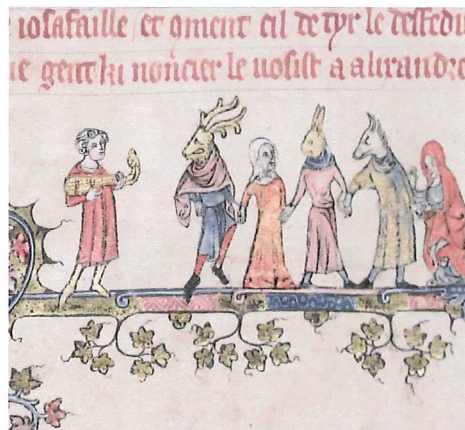 iosafaille et qment cil de tyr le deffedi
ie gent ki noncier le uosist a alixandre